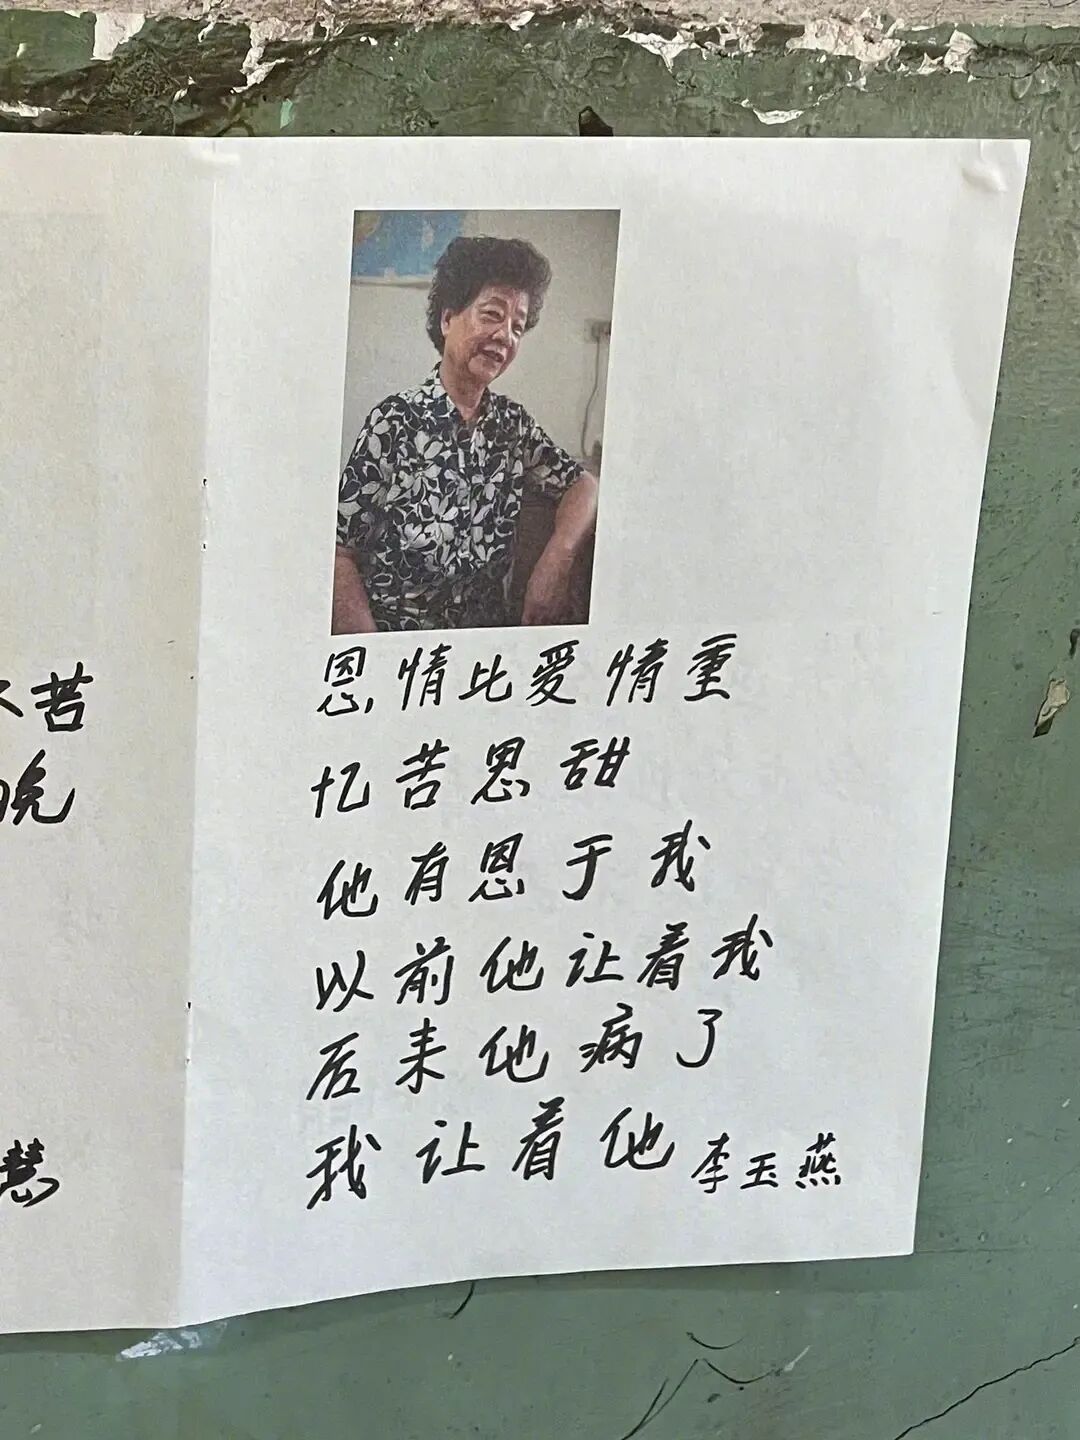 苦
晚
慧
恩情比爱情重
忆苦思甜
他有恩于我
以前他让着我
后来他病了
我让着他 李玉燕